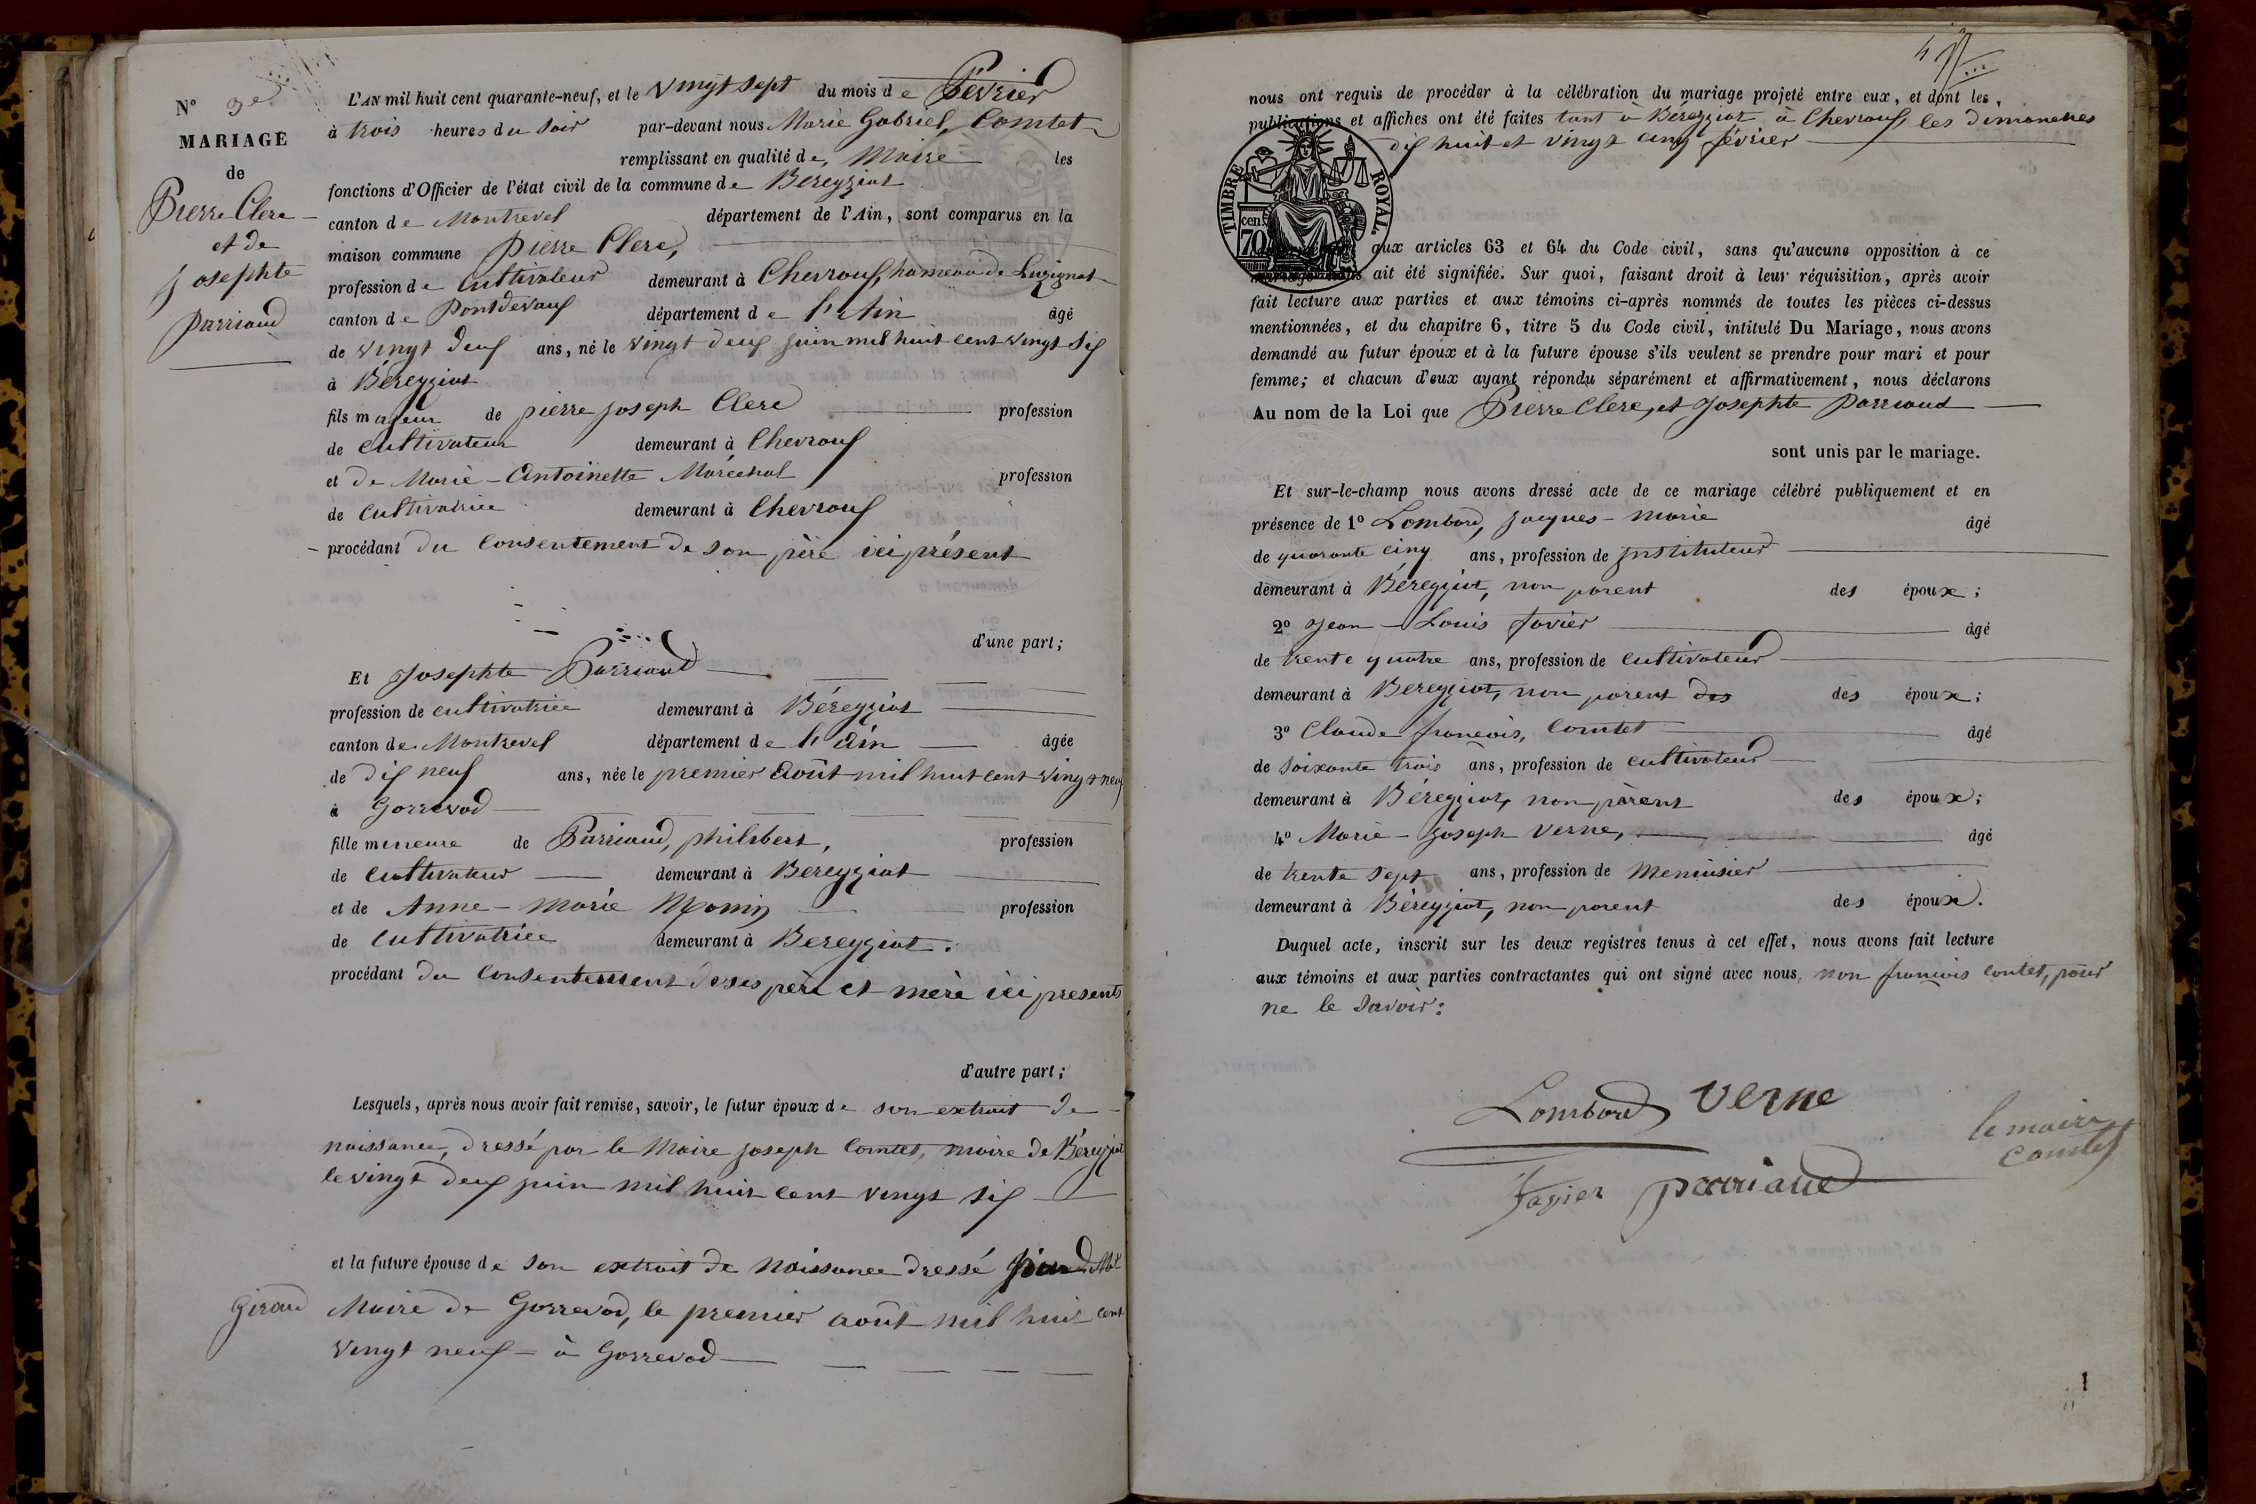 N° 3e
MARIAGE
de
Pierre Clerc
et de
Josephte
Parriaud
L'AN mil huit cent quarante-neuf, et le vingt sept du mois de Février
à trois heures du soir par-devant nous Marie Gabriel, Comtet
remplissant en qualité de, Maire les
fonctions d'Officier de l'état civil de la commune de Béreyziat
canton de Montrevel département de l'Ain, sont comparus en la
maison commune Pierre Clerc,
profession de Cultivateur demeurant à Chevroux, hameau de Luzignat
canton de Pontdevaux département de l'Ain âgé
de vingt deux ans, né le vingt deux juin mil huit cent vingt six
à Béreyziat
fils majeur de pierre joseph Clerc profession
de cultivateur demeurant à Chevroux
et de Marie-Antoinette Maréchal profession
de cultivatrice demeurant à Chevroux
procédant du Consentement de son père ici présent
d'une part;
Et Josephte Parriaud
profession de cultivatrice demeurant à Béreyziat
canton de Montrevel département de l'Ain âgée
de dix neuf ans, née le premier Août mil huit cent vingt neuf
à Gorrevod
fille mineure de Parriaud, philibert, profession
de Cultivateur demeurant à Bereyziat
et de Anne-Marie Monin profession
de Cultivatrice demeurant à Bereyziat.
procédant du Consentement de ses père et mère ici présents
d'autre part;
Lesquels, après nous avoir fait remise, savoir, le futur époux de son extrait de
naissance, dressé par le Maire joseph Comtet, maire de Béreyziat
le vingt deux juin mil huit cent vingt six
et la future épouse de son extrait de Naissance dressé par
Giraud Maire de Gorrevod, le premier août mil huit cent
vingt neuf à Gorrevod
nous ont requis de procéder à la célébration du mariage projeté entre eux, et dont les
publications et affiches ont été faites tant à Béreyziat à Chevroux, les dimanches
dix huit et vingt cinq février
TIMBRE ROYAL
cen
70
aux articles 63 et 64 du Code civil, sans qu'aucune opposition à ce
mariage nous ait été signifiée. Sur quoi, faisant droit à leur réquisition, après avoir
fait lecture aux parties et aux témoins ci-après nommés de toutes les pièces ci-dessus
mentionnées, et du chapitre 6, titre 5 du Code civil, intitulé Du Mariage, nous avons
demandé au futur époux et à la future épouse s'ils veulent se prendre pour mari et pour
femme; et chacun d'eux ayant répondu séparément et affirmativement, nous déclarons
Au nom de la Loi que Pierre Clerc, et Josephte Parriaud
sont unis par le mariage.
Et sur-le-champ nous avons dressé acte de ce mariage célébré publiquement et en
présence de 1° Lombard, Jacques-Marie âgé
de quarante cinq ans, profession de Instituteur
demeurant à Béreyziat, non parent des époux;
2° Jean-Louis favier âgé
de trente quatre ans, profession de cultivateur
demeurant à Bereyziat, non parent des des époux;
3° Claude françois, Comtet âgé
de soixante trois ans, profession de cultivateur
demeurant à Béreyziat, non parent des époux;
4° Marie-Joseph Verne, âgé
de trente sept ans, profession de Menuisier
demeurant à Béreyziat, non parent des époux.
Duquel acte, inscrit sur les deux registres tenus à cet effet, nous avons fait lecture
aux témoins et aux parties contractantes qui ont signé avec nous, non françois contet, pour
ne le Savoir:
Lombard Verne
le maire
Comtet
favier parriaud
1